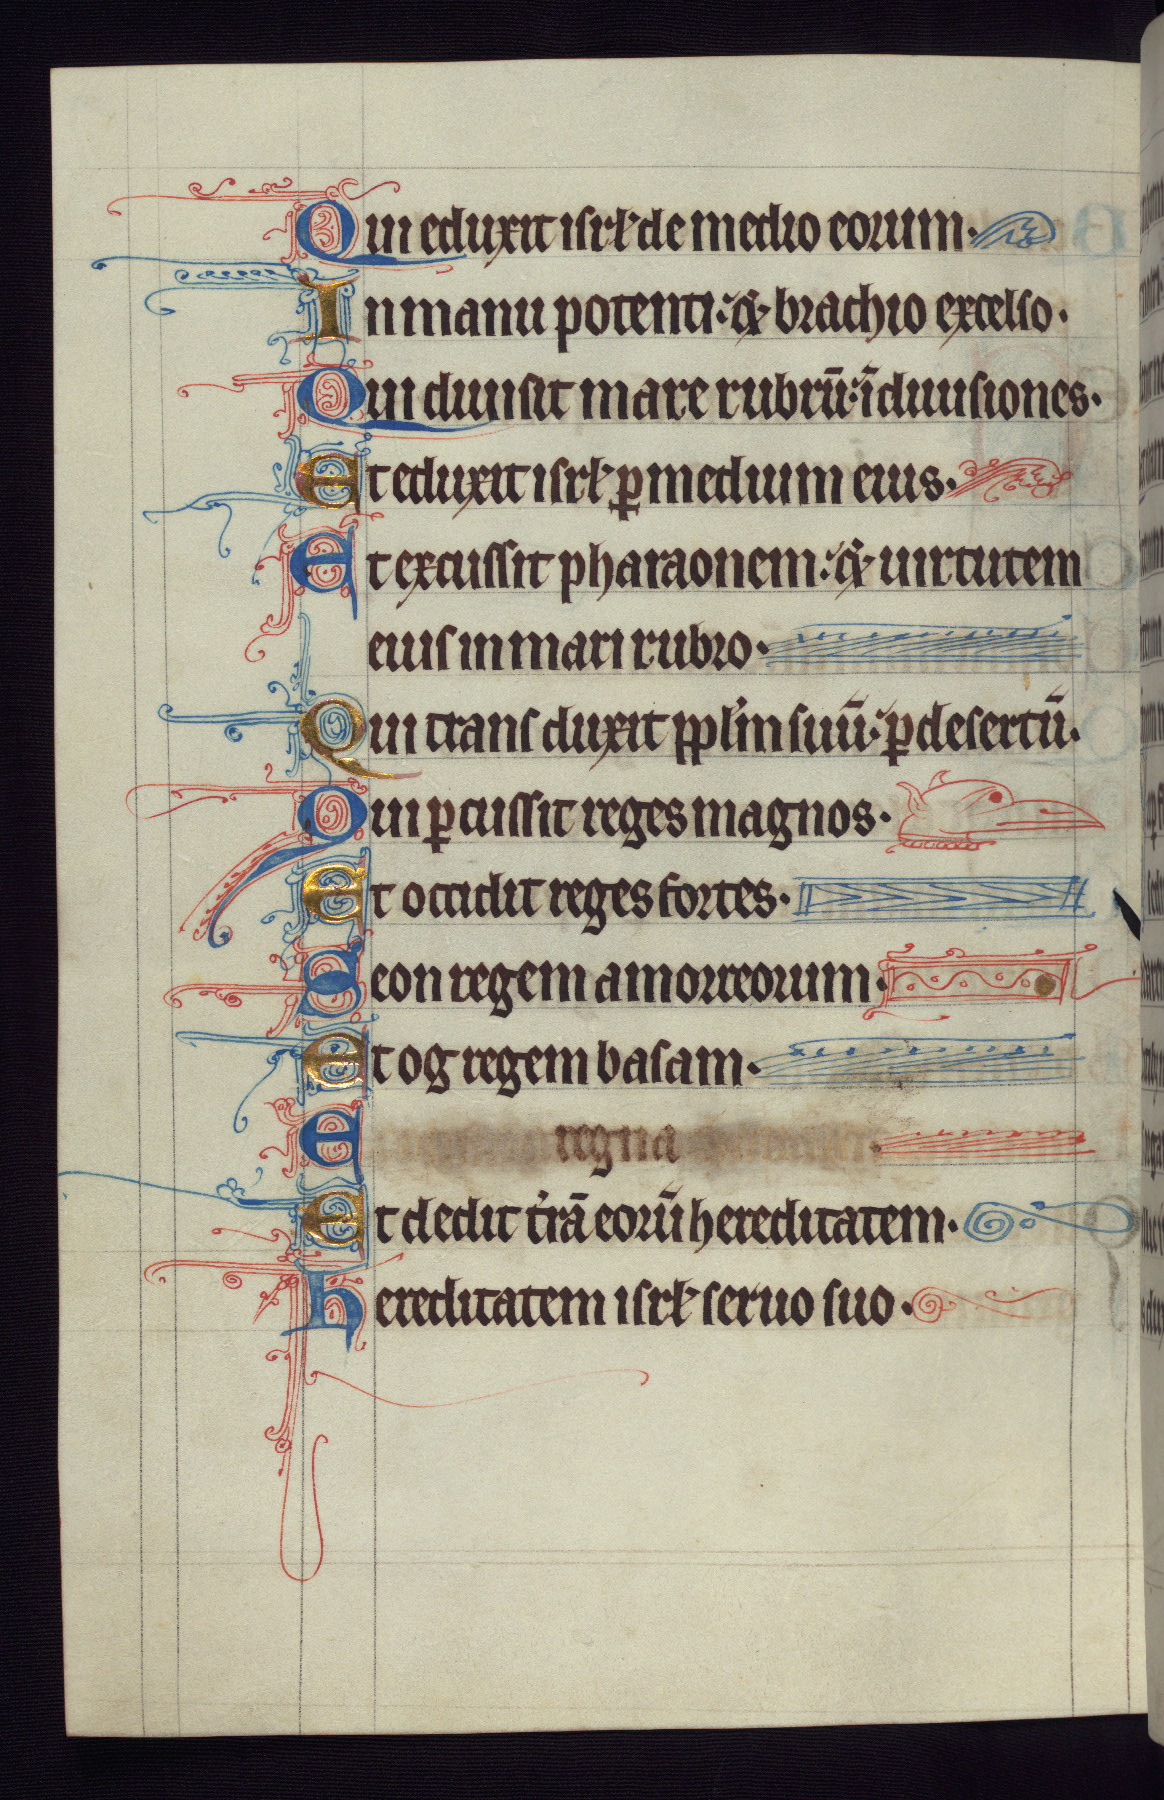 Qui eduxit isrł de medio eorum.
In manu potenti: & brachio excelso.
Qui diuisit mare rubrū: ī diuisiones.
Et eduxit isrł ꝑ medium eius.
Et excussit pharaonem: & uirtutem
eius in mari rubro.
Qui transduxit pplm̄ suū: ꝑ desertū.
Qui ꝑcussit reges magnos.
Et occidit reges fortes.
Seon regem amorreorum.
Et og regem basam.
E regna
Et dedit t̄rā eorū hereditatem.
hereditatem isrł seruo suo.